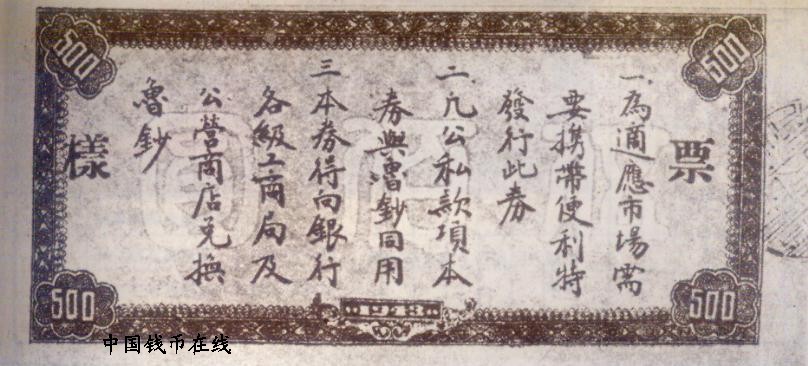 500
500
票
一.為適應市場需
要携帶便利特
發行此券
二.凡公私款項本
券與魯鈔同用
三本券得向銀行
各級工商局及
公營商店兑換
魯鈔
樣
1943
500
500
中国钱币在线